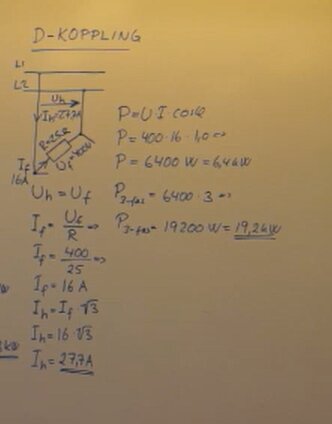 D-KOPPLING
L1
L2
Uh
Ih=27,7A
R=25Ω
Uf=400V
If
16A
Uh = Uf
If = Uf/R =>
If = 400/25 =>
If = 16 A
Ih = If · √3
Ih = 16 · √3
Ih = 27,7A
P=U·I·cosφ
P= 400·16·1,0 =>
P= 6400 W = 6,4 kW
P3-fas = 6400 · 3 =>
P3-fas = 19200 W = 19,2 kW